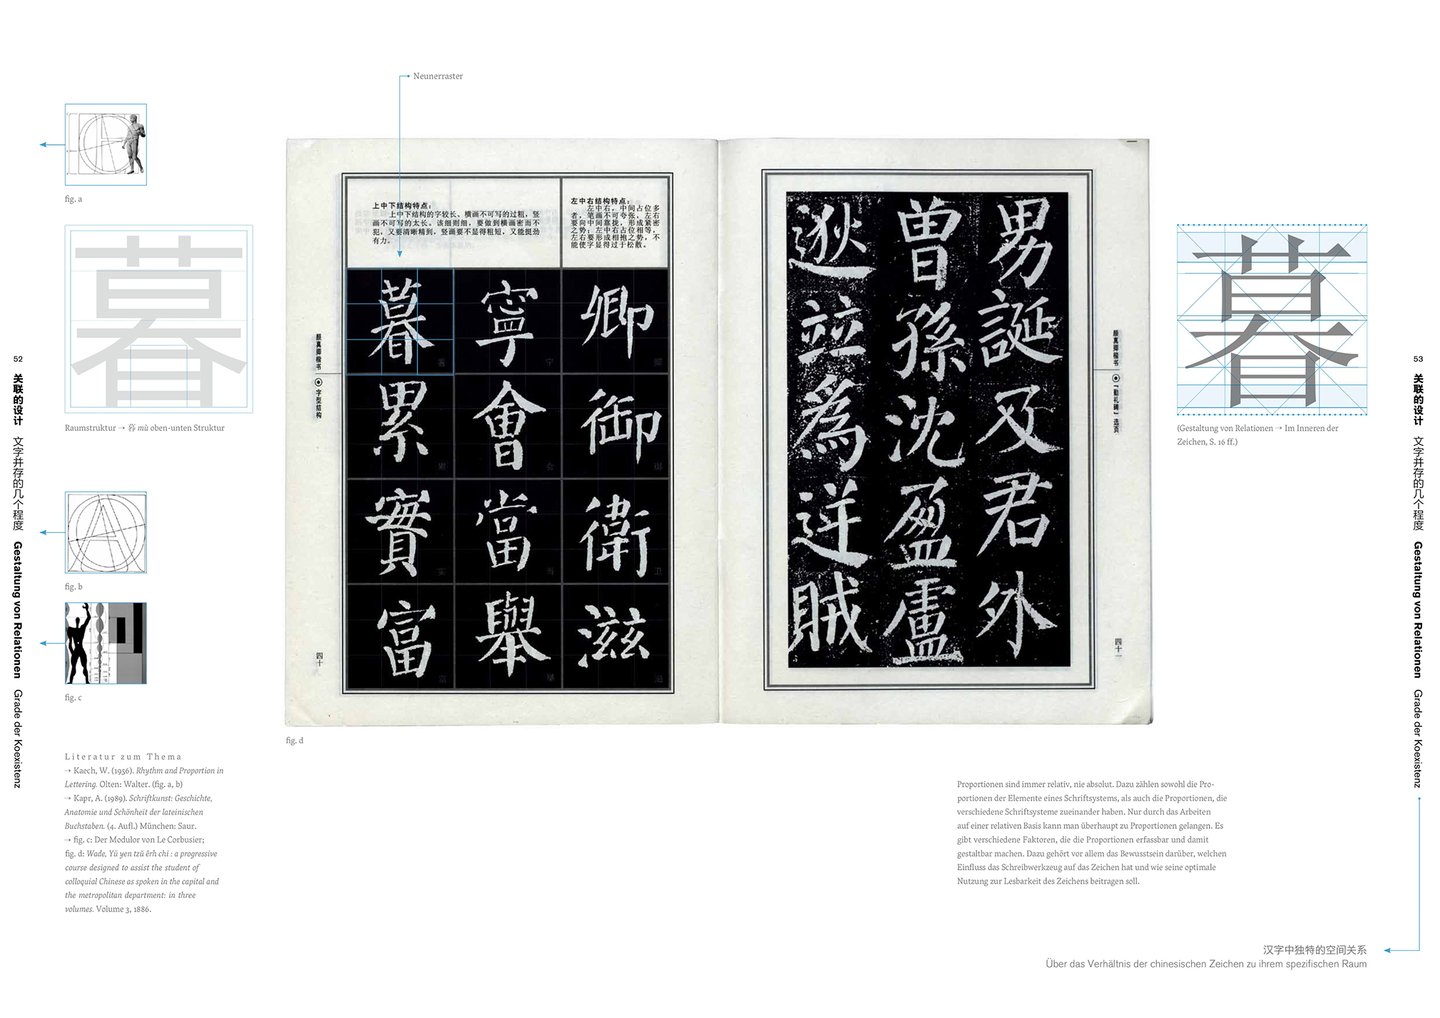 Neunerraster
fig. a
暮
Raumstruktur → 暮 mù oben-unten Struktur
fig. b
fig. c
Literatur zum Thema
→ Kaech, W. (1956). Rhythm and Proportion in
Lettering. Olten: Walter. (fig. a, b)
→ Kapr, A. (1989). Schriftkunst: Geschichte,
Anatomie und Schönheit der lateinischen
Buchstaben. (4. Aufl.) München: Saur.
→ fig. c: Der Modulor von Le Corbusier;
fig. d: Wade, Yü yen tzŭ êrh chi : a progressive
course designed to assist the student of
colloquial Chinese as spoken in the capital and
the metropolitan department: in three
volumes. Volume 3, 1886.
52
关联的设计 文字并存的几个程度 Gestaltung von Relationen Grade der Koexistenz
上中下结构特点：
上中下结构的字较长、横画不可写的过粗，竖
画不可写的太长。该细则细，要做到横画密而不
犯，又要清晰精到，竖画要不显得粗短，又能挺劲
有力。
左中右结构特点：
左中右，中间占位多
者，笔画不可夸张，左右
要向中间靠拢，形成紧密
之势；左中右占位相等，
左右要形成相抱之势，不
能使字显得过于松散。
卿御衛滋
寧會當舉
暮累實富
颜真卿楷书
字型结构
四十
fig. d
男誕及君外
曾孫沈盈盧
逖竝為逆賊
颜真卿楷书
「勤礼碑」选页
四十一
暮
(Gestaltung von Relationen → Im Inneren der
Zeichen, S. 16 ff.)
53
关联的设计 文字并存的几个程度 Gestaltung von Relationen Grade der Koexistenz
Proportionen sind immer relativ, nie absolut. Dazu zählen sowohl die Pro-
portionen der Elemente eines Schriftsystems, als auch die Proportionen, die
verschiedene Schriftsysteme zueinander haben. Nur durch das Arbeiten
auf einer relativen Basis kann man überhaupt zu Proportionen gelangen. Es
gibt verschiedene Faktoren, die die Proportionen erfassbar und damit
gestaltbar machen. Dazu gehört vor allem das Bewusstsein darüber, welchen
Einfluss das Schreibwerkzeug auf das Zeichen hat und wie seine optimale
Nutzung zur Lesbarkeit des Zeichens beitragen soll.
汉字中独特的空间关系
Über das Verhältnis der chinesischen Zeichen zu ihrem spezifischen Raum